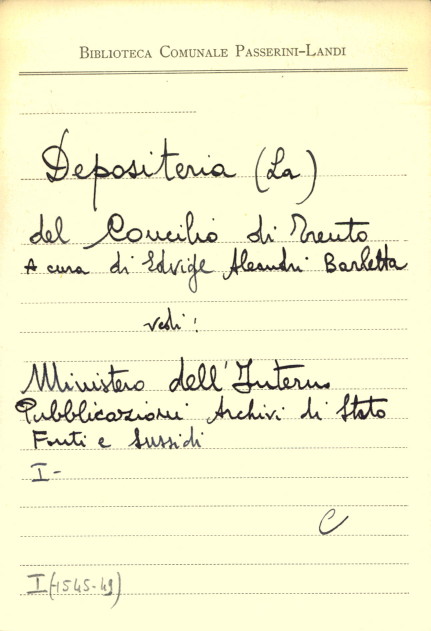 BIBLIOTECA COMUNALE PASSERINI-LANDI
Depositeria (La)
del Concilio di Trento
A cura di Edvige Aleandri Barletta
vedi:
Ministero dell'Interno
Pubblicazioni Archivi di Stato
Fonti e Sussidi
I-
C
I (1545-49)